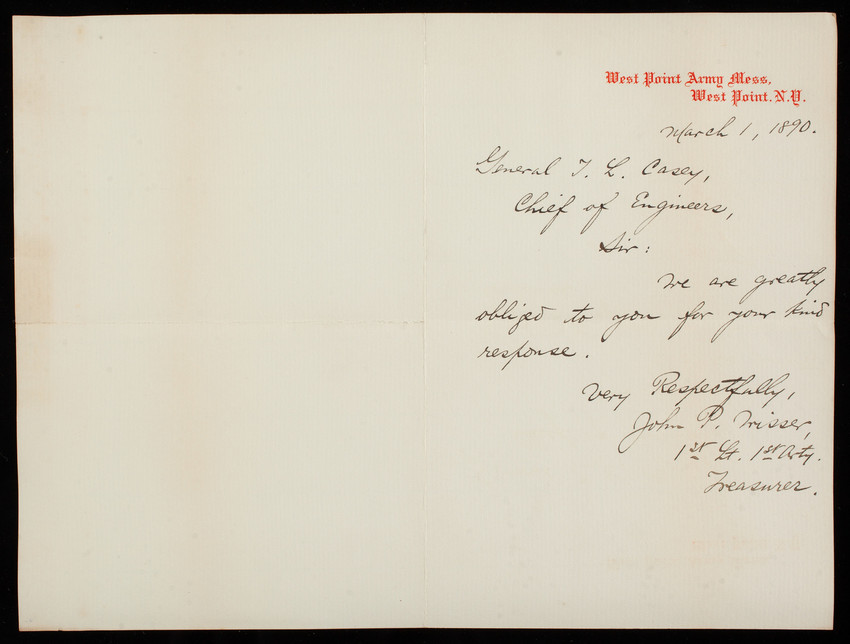 West Point Army Mess,
West Point. N.Y.
March 1, 1890.
General T. L. Casey,
Chief of Engineers,
Sir:
We are greatly
obliged to you for your kind
response.
Very Respectfully,
John P. Wisser,
1st Lt. 1st Arty.
Treasurer.